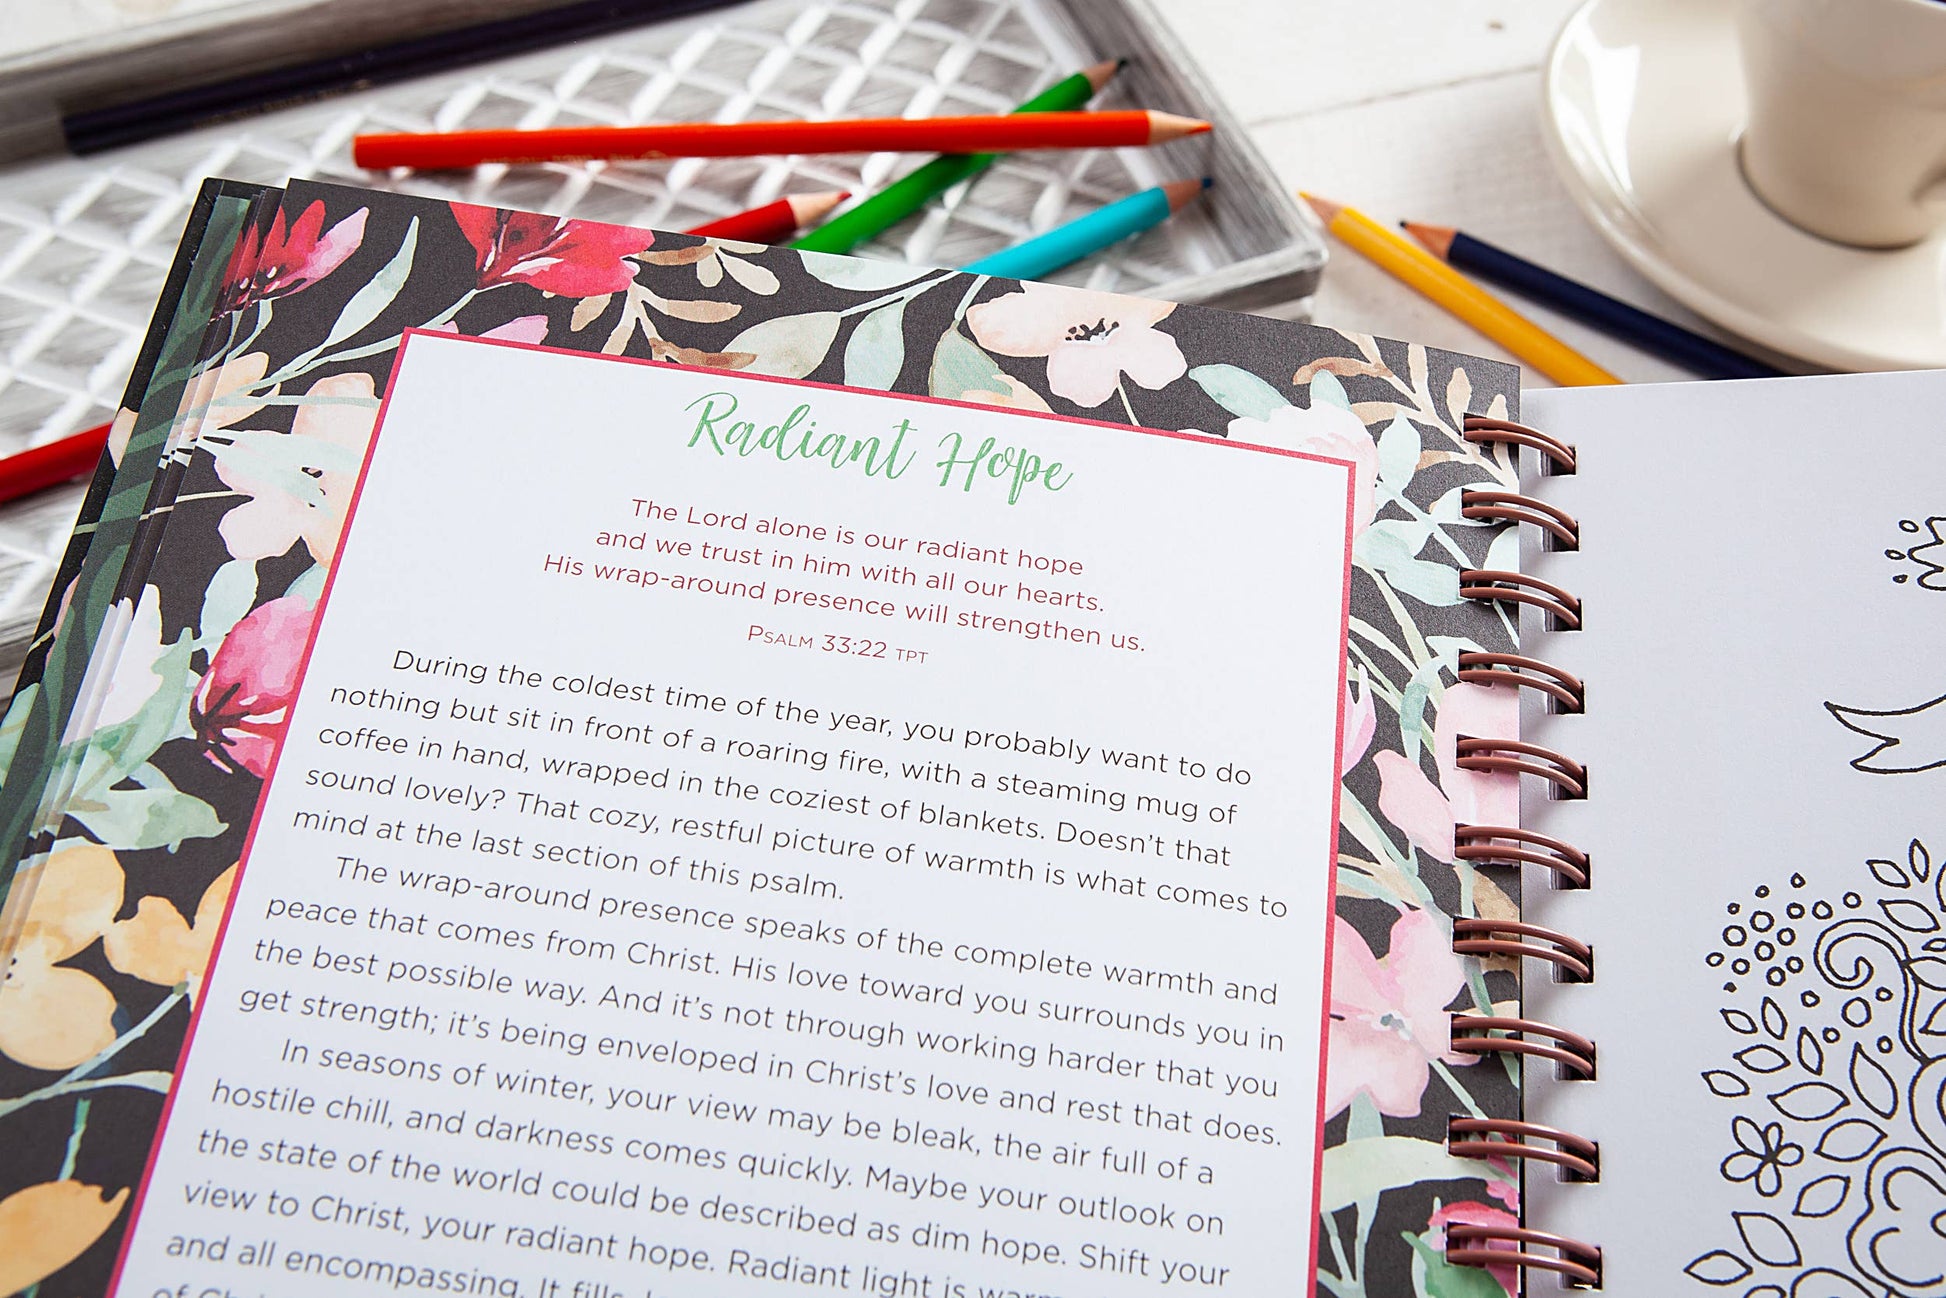 Radiant Hope
The Lord alone is our radiant hope
and we trust in him with all our hearts.
His wrap-around presence will strengthen us.
Psalm 33:22 TPT
During the coldest time of the year, you probably want to do
nothing but sit in front of a roaring fire, with a steaming mug of
coffee in hand, wrapped in the coziest of blankets. Doesn't that
sound lovely? That cozy, restful picture of warmth is what comes to
mind at the last section of this psalm.
The wrap-around presence speaks of the complete warmth and
peace that comes from Christ. His love toward you surrounds you in
the best possible way. And it's not through working harder that you
get strength; it's being enveloped in Christ's love and rest that does.
In seasons of winter, your view may be bleak, the air full of a
hostile chill, and darkness comes quickly. Maybe your outlook on
the state of the world could be described as dim hope. Shift your
view to Christ, your radiant hope. Radiant light is
and all encompassing. It fills
of